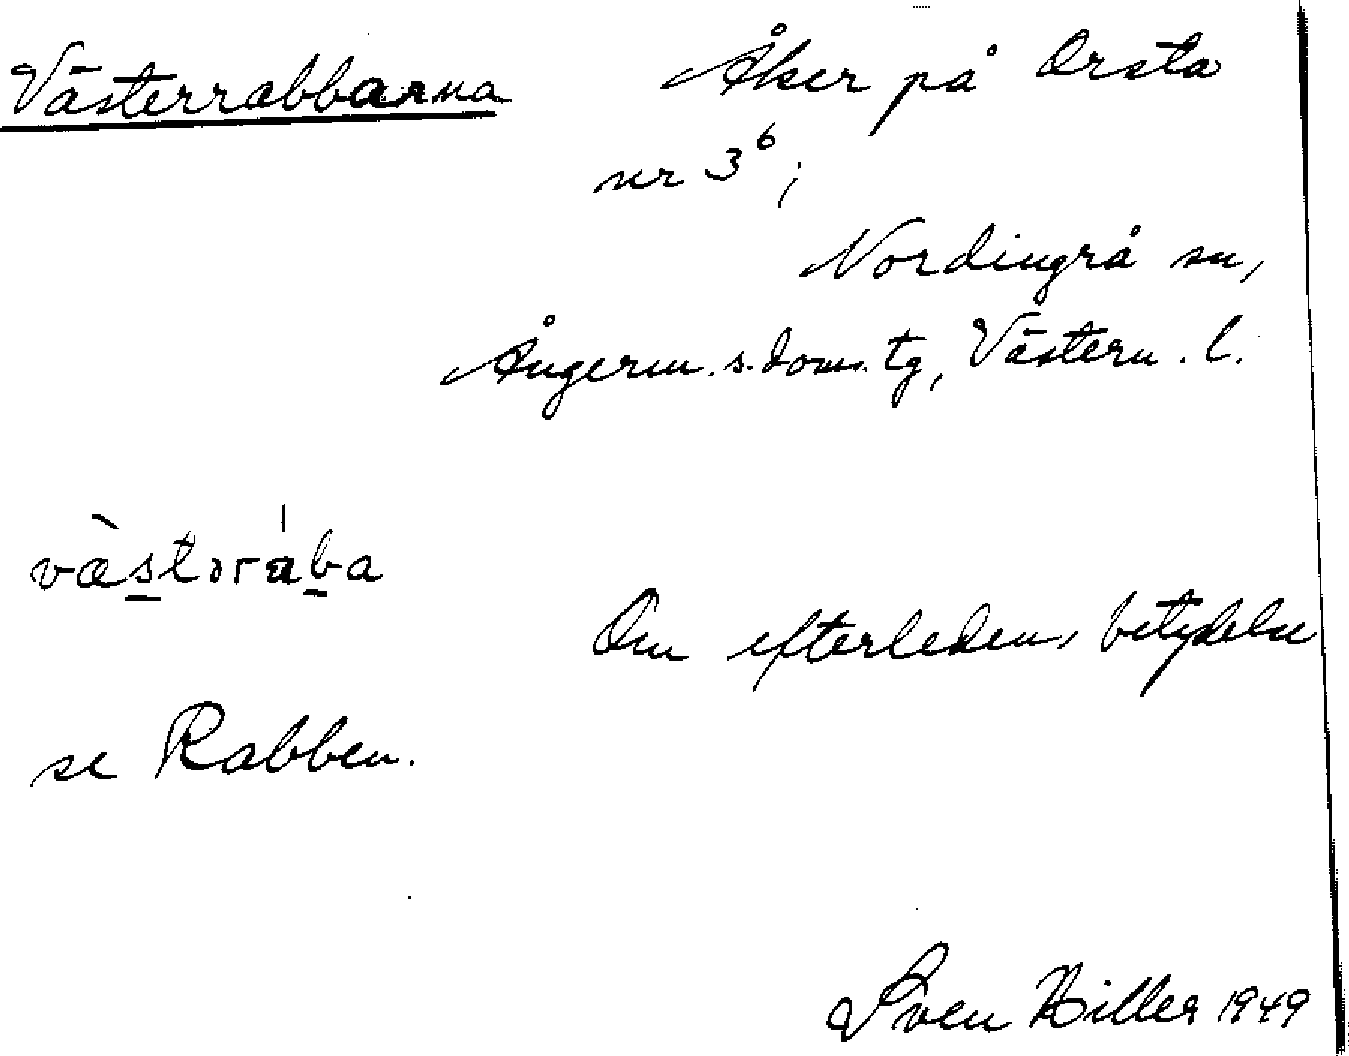 Västerrabbarna Åker på Orsta
nr 3⁶ i
Nordingrå sn,
Ångerm. s. doms. tg, Västern. l.
væ̀stərába
Om efterledens betydelse
se Rabben.
Sven Hiller 1949